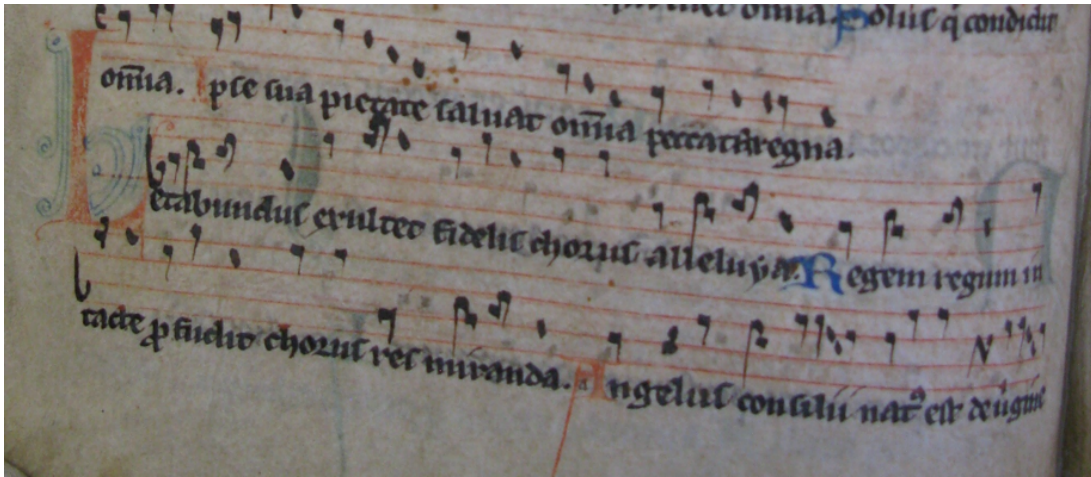 omnia. Solus q̇ condidit
om̄ia. Ipse sua pietate saluat om̄ia peccata regna.
Letabundus exultet fidelis chorus alleluya. Regem regum in
tacte ꝓfudit chorus res miranda. Angelus consilii natꝰ est de uirgine